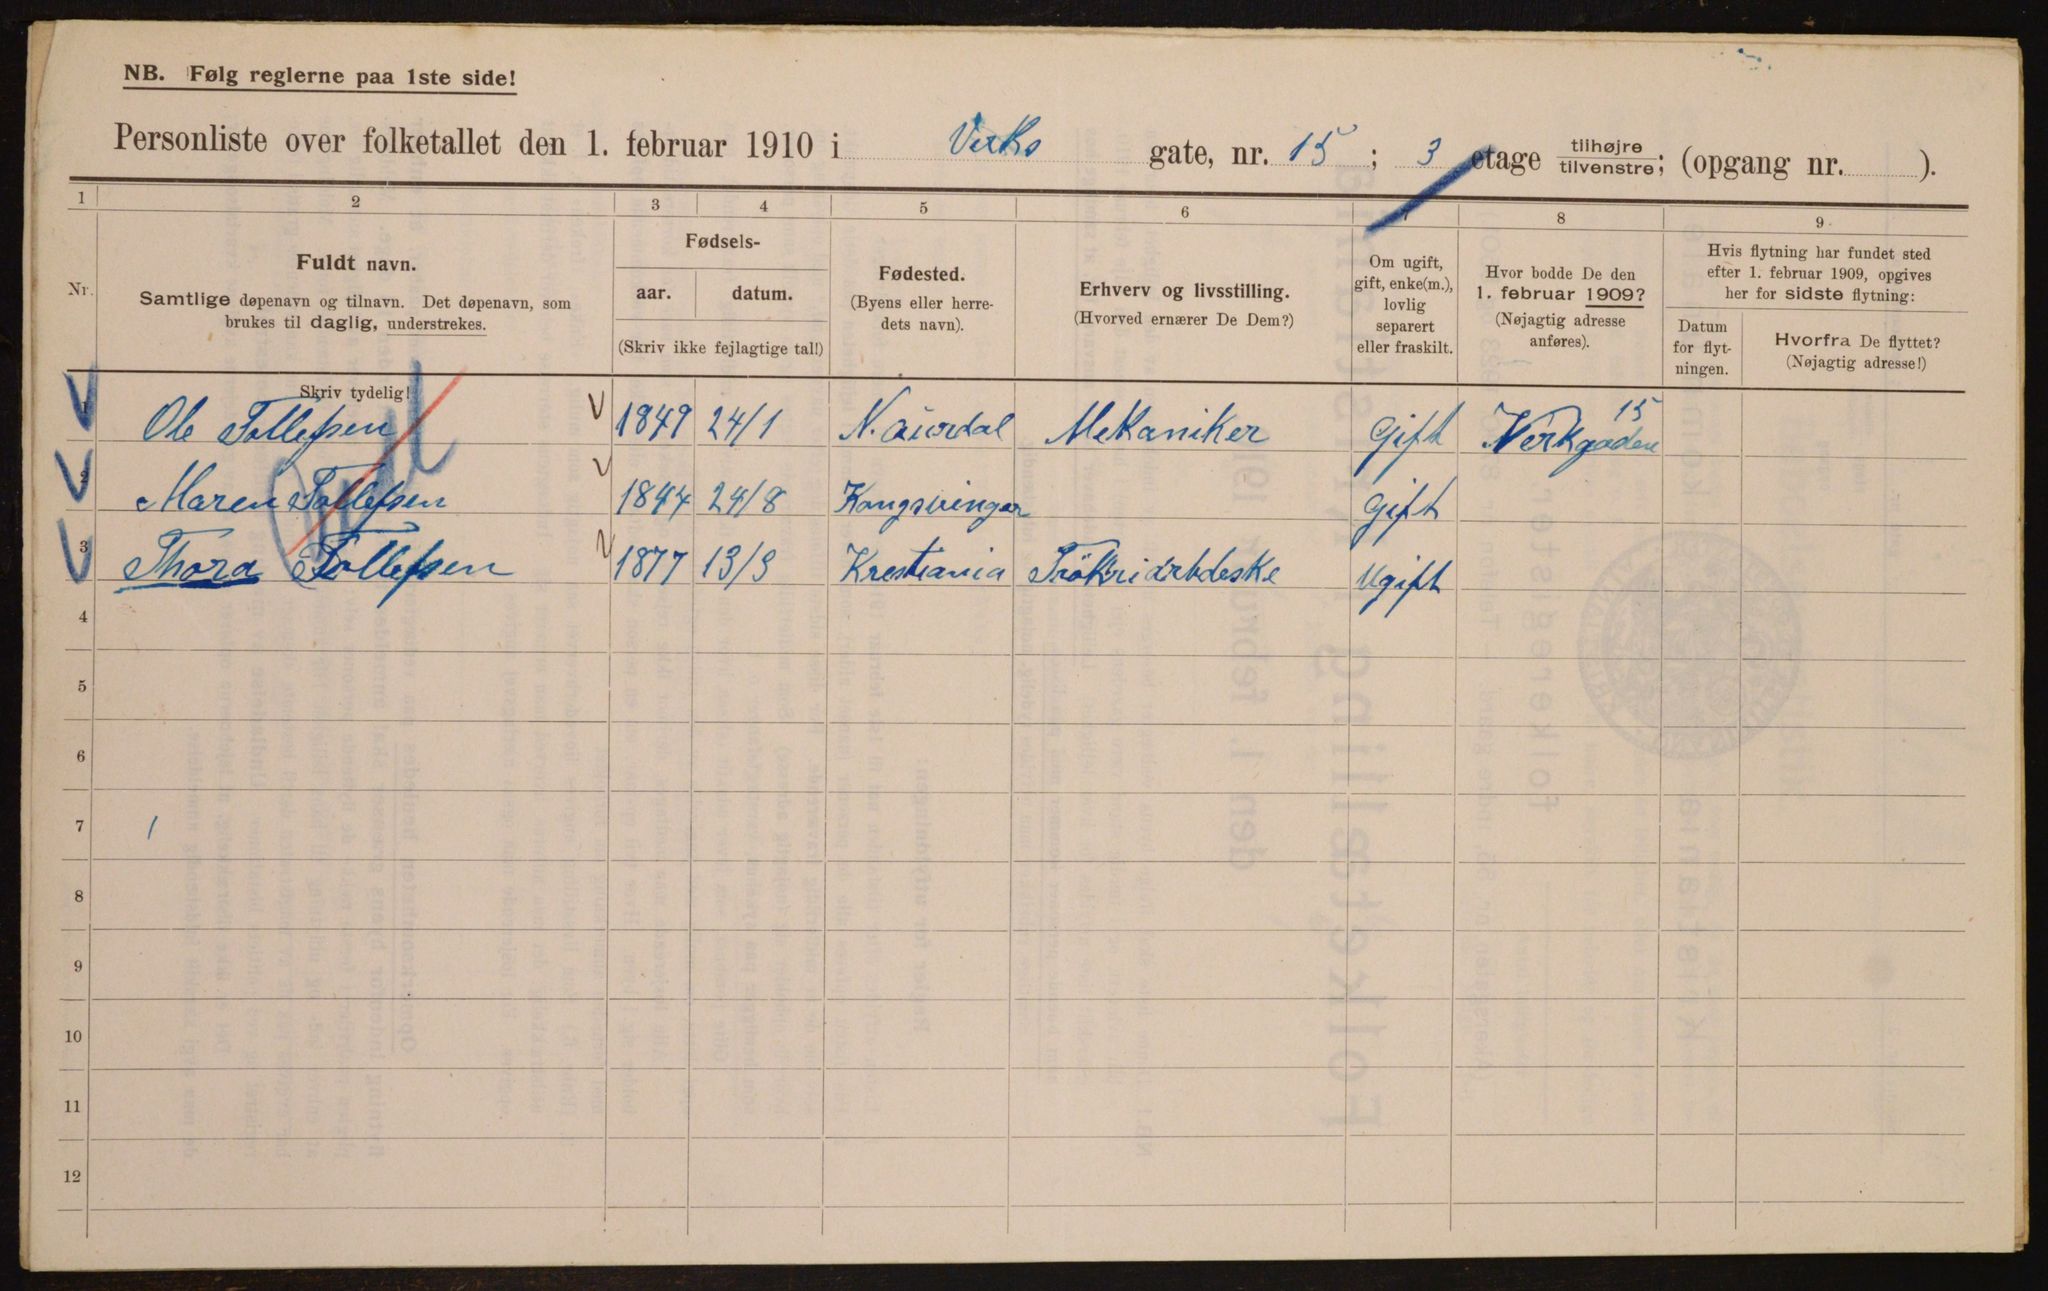 NB. Følg reglerne paa 1ste side!
Personliste over folketallet den 1. februar 1910 i Verks gate, nr. 15; 3 etage tilhøjre/tilvenstre; (opgang nr. ).
1 2 3 4 5 6 7 8 9
Nr.
Fuldt navn.
Samtlige døpenavn og tilnavn. Det døpenavn, som
brukes til daglig, understrekes.
Skriv tydelig!
Fødsels-
aar. datum.
(Skriv ikke fejlagtige tal!)
Fødested.
(Byens eller herre-
dets navn).
Erhverv og livsstilling.
(Hvorved ernærer De Dem?)
Om ugift,
gift, enke(m.),
lovlig
separert
eller fraskilt.
Hvor bodde De den
1. februar 1909?
(Nøjagtig adresse
anføres).
Hvis flytning har fundet sted
efter 1. februar 1909, opgives
her for sidste flytning:
Datum
for flyt-
ningen.
Hvorfra De flyttet?
(Nøjagtig adresse!)
1 Ole Tollefsen 1849 24/1 N. aurdal Mekaniker Gift Verkgaden 15
2 Maren Tollefsen 1844 24/8 Kongsvinger Gift
3 Thora Tollefsen 1877 13/3 Krestiania Ugift
4
5
6
7
8
9
10
11
12